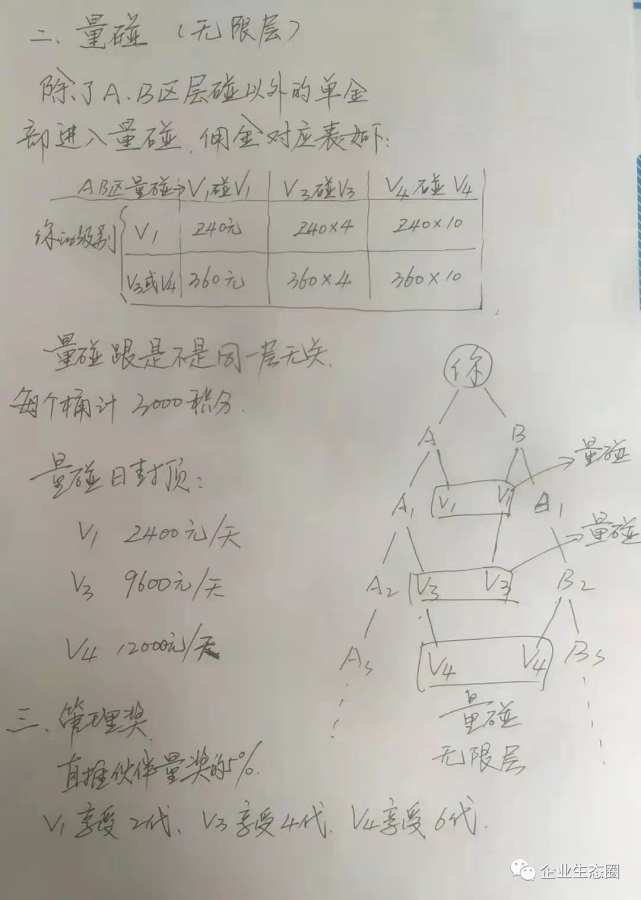 二、量碰（无限层）
除了A.B区层碰以外的单金
部进入量碰,佣金对应表如下:
AB区量碰→ V1碰V1 V3碰V3 V4碰V4
你的级别 V1 240元 240×4 240×10
V3或V4 360元 360×4 360×10
量碰跟是不是同一层无关.
每个桶计 3000积分.
量碰日封顶:
V1 2400元/天
V3 9600元/天
V4 12000元/天
你
A B
A1 V1 V1 B1 量碰
A2 V3 V3 B2 量碰
V4 V4
量碰
无限层
三、管理奖.
直推伙伴量奖的5%.
V1享受2代、V3享受4代、V4享受6代.
企业生态圈